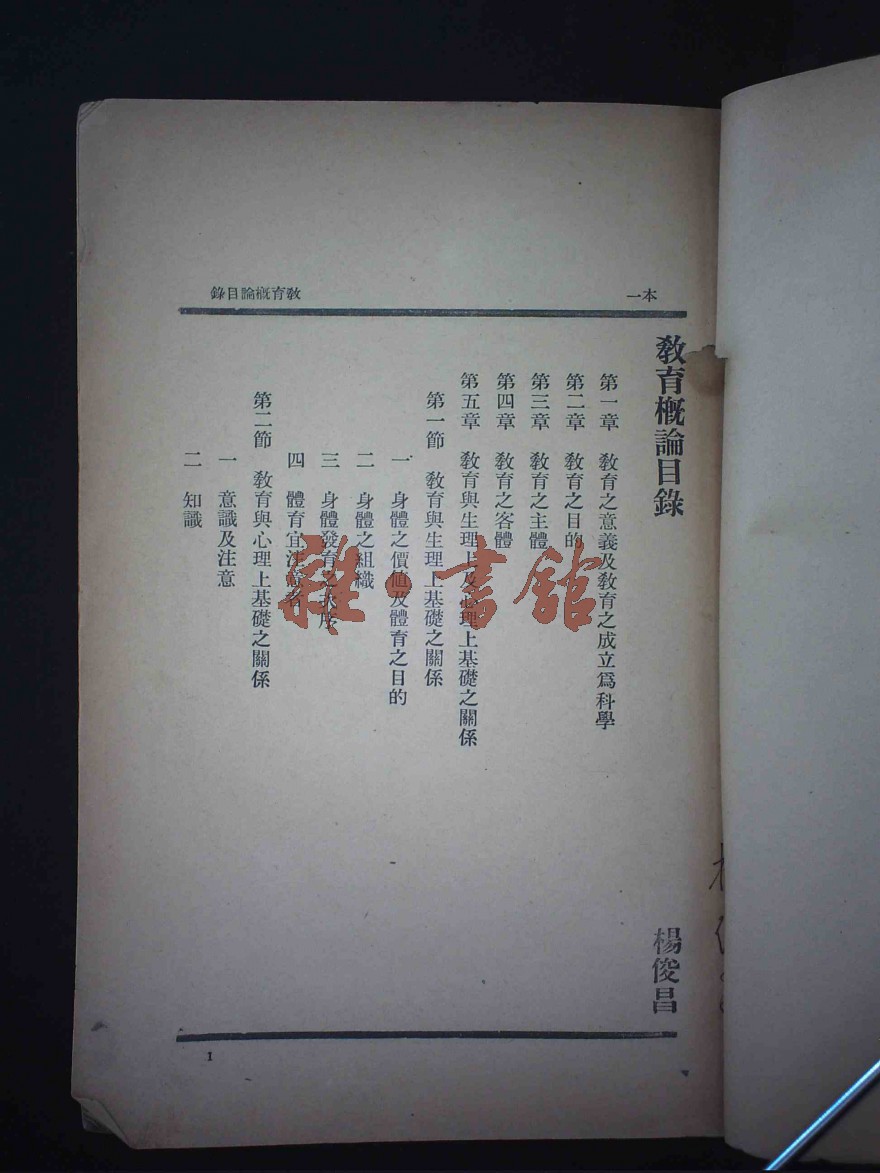 本一
教育概論目錄
教育概論目錄
楊俊昌
第一章 教育之意義及教育之成立爲科學
第二章 教育之目的
第三章 教育之主體
第四章 教育之客體
第五章 教育與生理上及心理上基礎之關係
第一節 教育與生理上基礎之關係
一 身體之價值及體育之目的
二 身體之組織
三 身體發育之次序
四 體育宜注意者
第二節 教育與心理上基礎之關係
一 意識及注意
二 知識
1
雜·書館